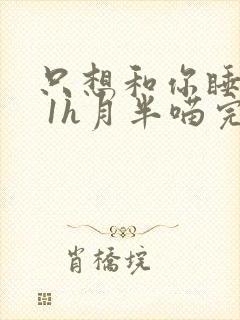 只想和你睡
1h月半喵完
肖橋垸